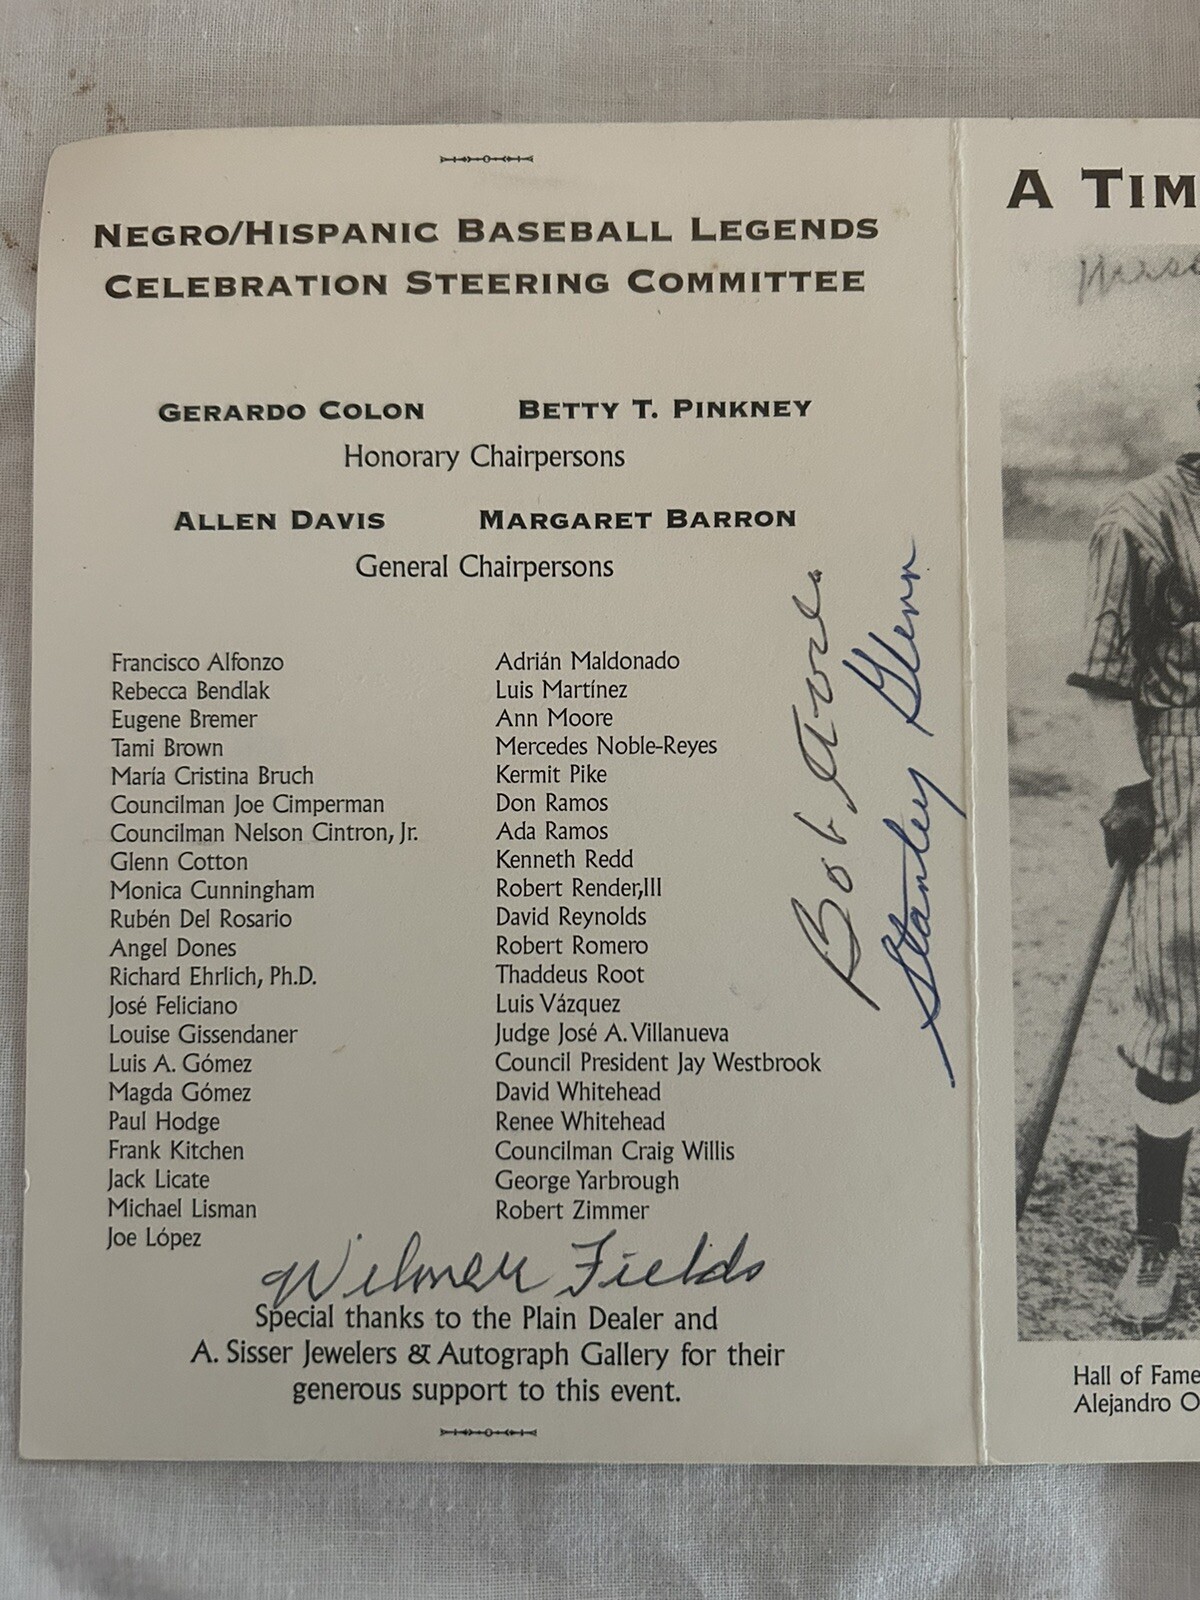 NEGRO/HISPANIC BASEBALL LEGENDS
CELEBRATION STEERING COMMITTEE
GERARDO COLON BETTY T. PINKNEY
Honorary Chairpersons
ALLEN DAVIS MARGARET BARRON
General Chairpersons
Francisco Alfonzo
Rebecca Bendlak
Eugene Bremer
Tami Brown
María Cristina Bruch
Councilman Joe Cimperman
Councilman Nelson Cintron, Jr.
Glenn Cotton
Monica Cunningham
Rubén Del Rosario
Angel Dones
Richard Ehrlich, Ph.D.
José Feliciano
Louise Gissendaner
Luis A. Gómez
Magda Gómez
Paul Hodge
Frank Kitchen
Jack Licate
Michael Lisman
Joe López
Adrián Maldonado
Luis Martínez
Ann Moore
Mercedes Noble-Reyes
Kermit Pike
Don Ramos
Ada Ramos
Kenneth Redd
Robert Render,III
David Reynolds
Robert Romero
Thaddeus Root
Luis Vázquez
Judge José A. Villanueva
Council President Jay Westbrook
David Whitehead
Renee Whitehead
Councilman Craig Willis
George Yarbrough
Robert Zimmer
Bob
Stanley Glenn
Wilmer Fields
Special thanks to the Plain Dealer and
A. Sisser Jewelers & Autograph Gallery for their
generous support to this event.
A TIM
Hall of Fame
Alejandro O